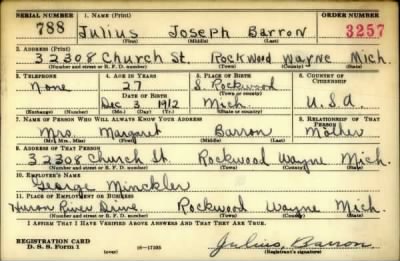 SERIAL NUMBER 1. NAME (Print) ORDER NUMBER
788 Julius Joseph Barron 3257
(First) (Middle) (Last)
2. ADDRESS (Print)
32308 Church St. Rockwood Wayne Mich.
(Number and street or R. F. D. number) (Town) (County) (State)
3. TELEPHONE 4. AGE IN YEARS 5. PLACE OF BIRTH 6. COUNTRY OF CITIZENSHIP
None 27 S. Rockwood
DATE OF BIRTH (Town or county)
Dec 3 1912 Mich. U.S.A
(Exchange) (Number) (Mo.) (Day) (Yr.) (State or country)
7. NAME OF PERSON WHO WILL ALWAYS KNOW YOUR ADDRESS 8. RELATIONSHIP OF THAT PERSON
Mrs. Margaret Barron Mother
(Mr., Mrs., Miss) (First) (Middle) (Last)
9. ADDRESS OF THAT PERSON
32308 Church St. Rockwood Wayne Mich.
(Number and street or R. F. D. number) (Town) (County) (State)
10. EMPLOYER'S NAME
George Minckler
11. PLACE OF EMPLOYMENT OR BUSINESS
Huron River Drive Rockwood Wayne Mich.
(Number and street or R. F. D. number) (Town) (County) (State)
I AFFIRM THAT I HAVE VERIFIED ABOVE ANSWERS AND THAT THEY ARE TRUE.
REGISTRATION CARD
D. S. S. Form 1 (over) 16—17105 Julius Barron
(Registrant's signature)